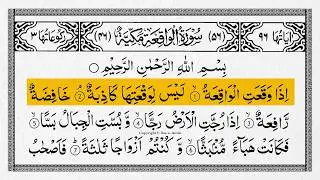 اٰيَاتُهَا ٩٦ (٥٦) سُوْرَةُ الْوَاقِعَةِ مَكِّيَّةٌ (٤٦) رُكُوْعَاتُهَا ٣
بِسْمِ اللّٰهِ الرَّحْمٰنِ الرَّحِيْمِ ○
اِذَا وَقَعَتِ الْوَاقِعَةُ ۙ١ لَيْسَ لِوَقْعَتِهَا كَاذِبَةٌ ۘ٢ خَافِضَةٌ
رَّافِعَةٌ ۙ٣ اِذَا رُجَّتِ الْاَرْضُ رَجًّا ۙ٤ وَّ بُسَّتِ الْجِبَالُ بَسًّا ۙ٥
فَكَانَتْ هَبَآءً مُّنْۢبَثًّا ۙ٦ وَّ كُنْتُمْ اَزْوَاجًا ثَلٰثَةً ؕ٧ فَاَصْحٰبُ